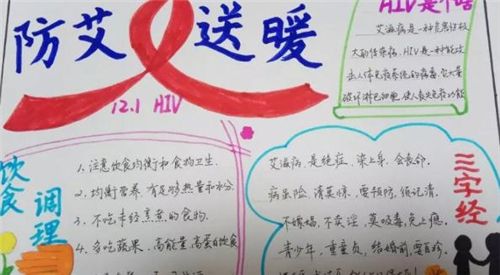 防艾 送暖
12.1 HIV
HIV是个啥
艾滋病是一种危害性极
大的传染病，HIV是一种能攻
击人体免疫系统的病毒，它大量
破坏淋巴细胞，使人丧失免疫功能
饮食调理
1、注意饮食均衡和食物卫生.
2、均衡营养，有足够热量和水份
3、不吃未经烹煮的食物.
4、多吃蔬果、高能量、高蛋白饮食
三字经
艾滋病，是绝症，染上身，会丧命.
病虽险，清莫惊，要预防，须记清.
不嫖娼，不卖淫，莫吸毒，免上瘾.
青少年，重童贞，结婚前，要自珍.